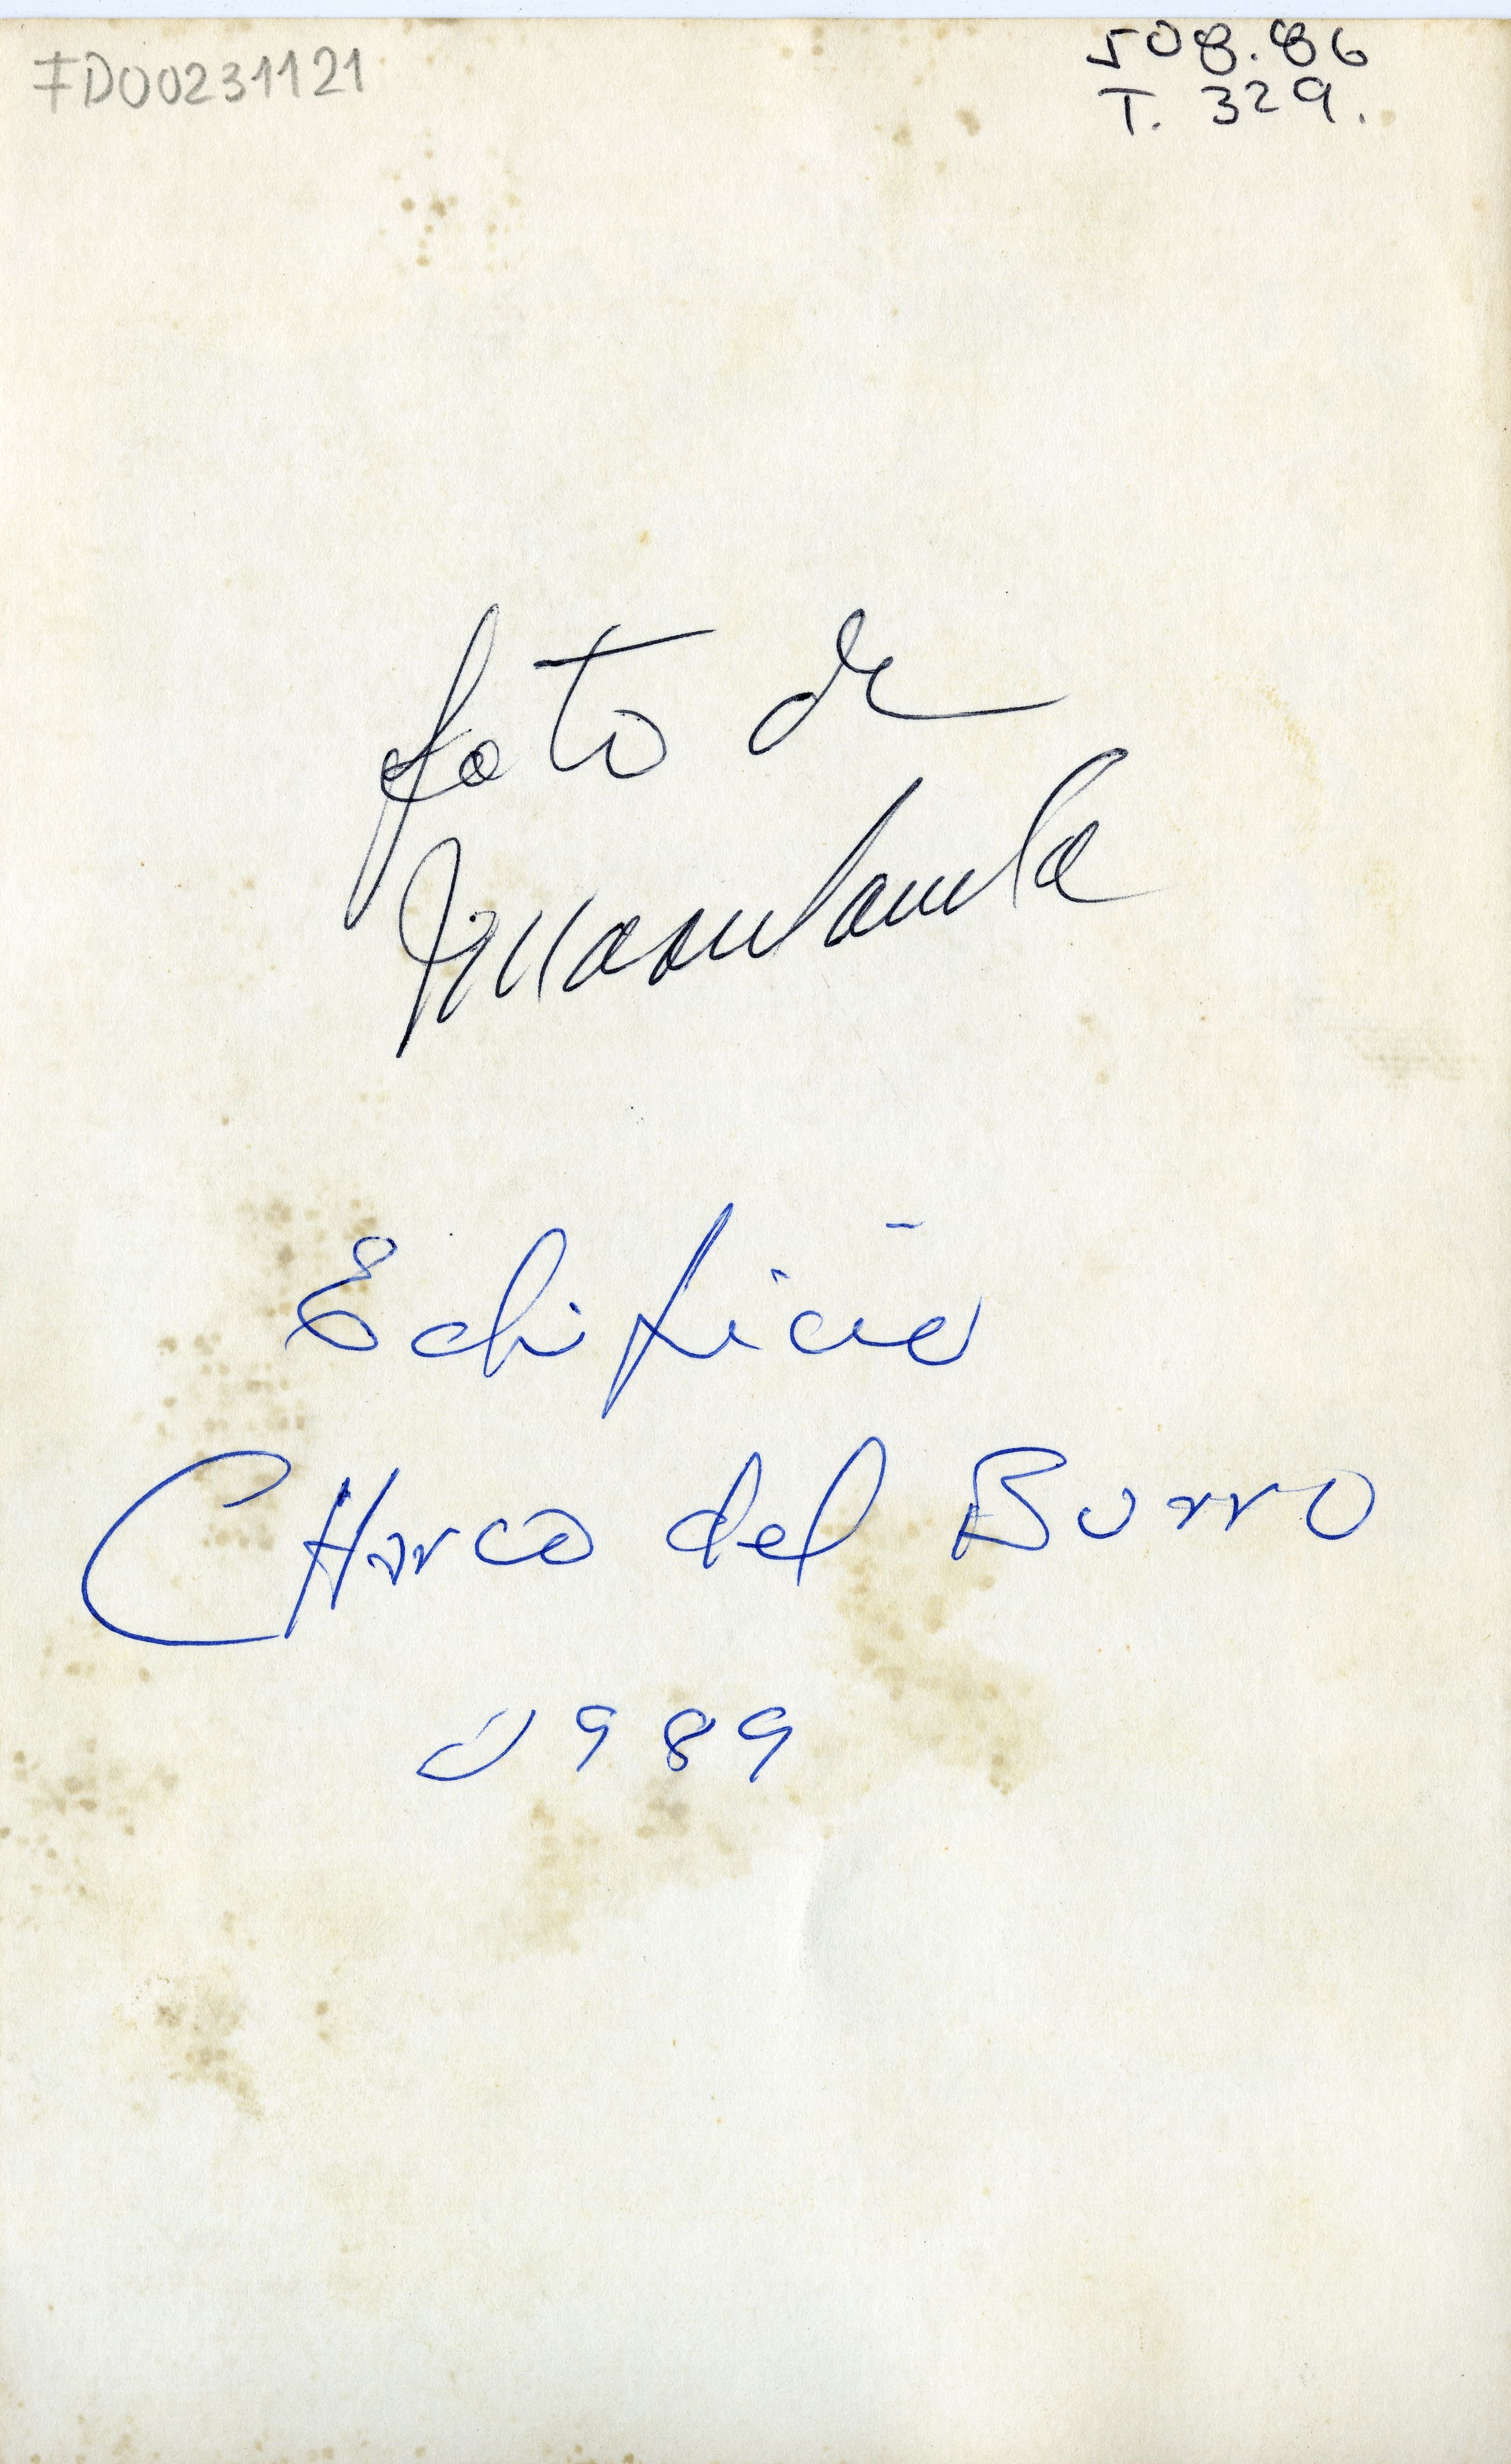 FD00231121
508.86
T. 329.
foto de
Edificio
CHarco del Burro
1989